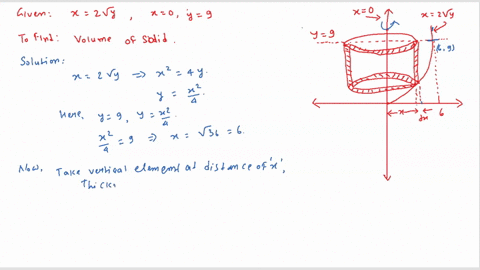 Given: x = 2√y, x=0, y=9
To Find: Volume of Solid
Solution:
x = 2√y ⇒ x² = 4y.
y = x²/4.
Here, y=9, y = x²/4
x²/4 = 9 ⇒ x = √36 = 6.
Now, Take vertical element at distance of 'x',
Thick
x=0
x=2√y
y=9
(6,9)
x
dx
6